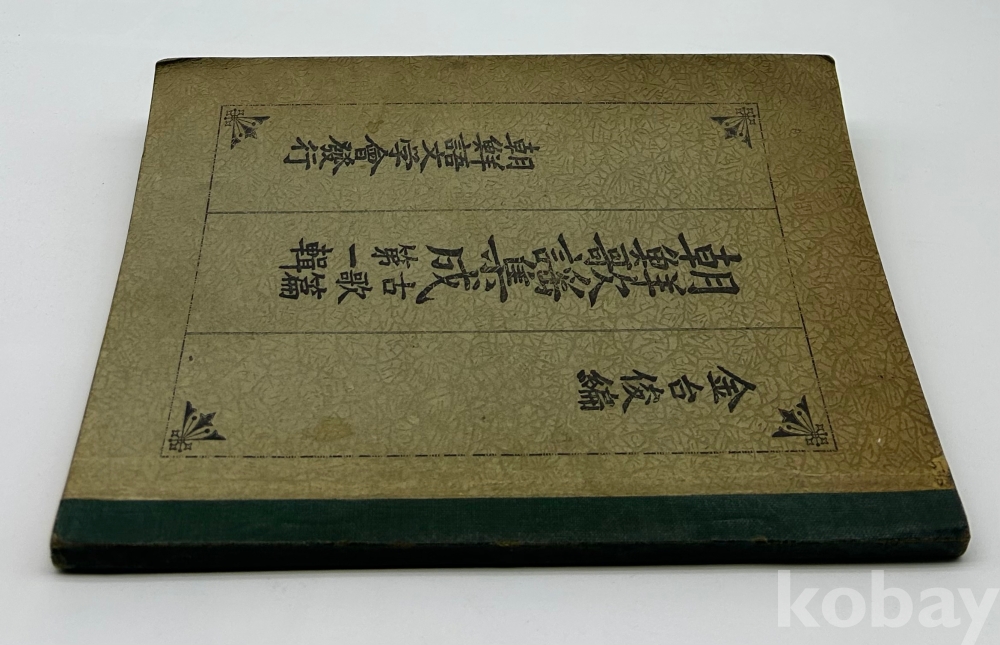 金台俊編
朝鮮歌謠集成
古歌篇
第一輯
朝鮮語文學會發行
kobay